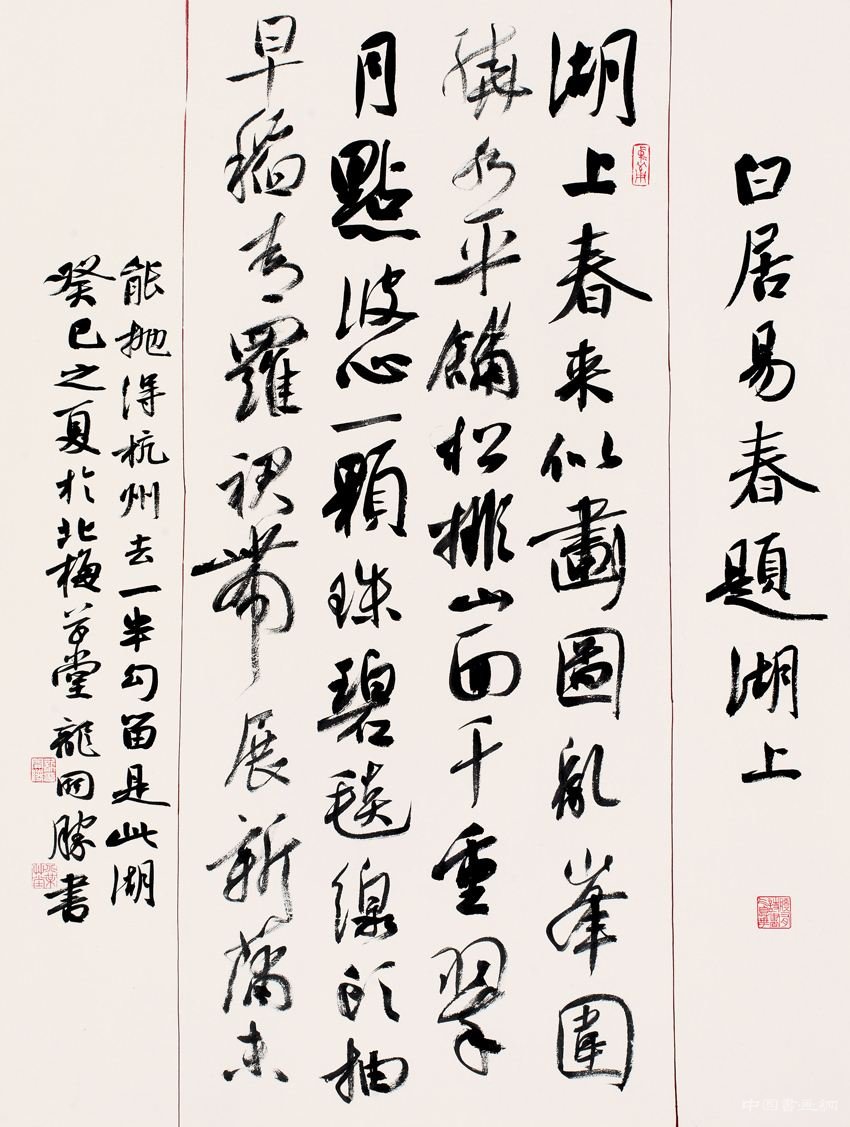 白居易春題湖上
湖上春來似畫圖亂峯圍
繞水平鋪松排山面千重翠
月點波心一顆珠碧毯線頭抽
早稻青羅裙帶展新蒲未
能抛得杭州去一半勾留是此湖
癸巳之夏於北梅草堂龍開勝書